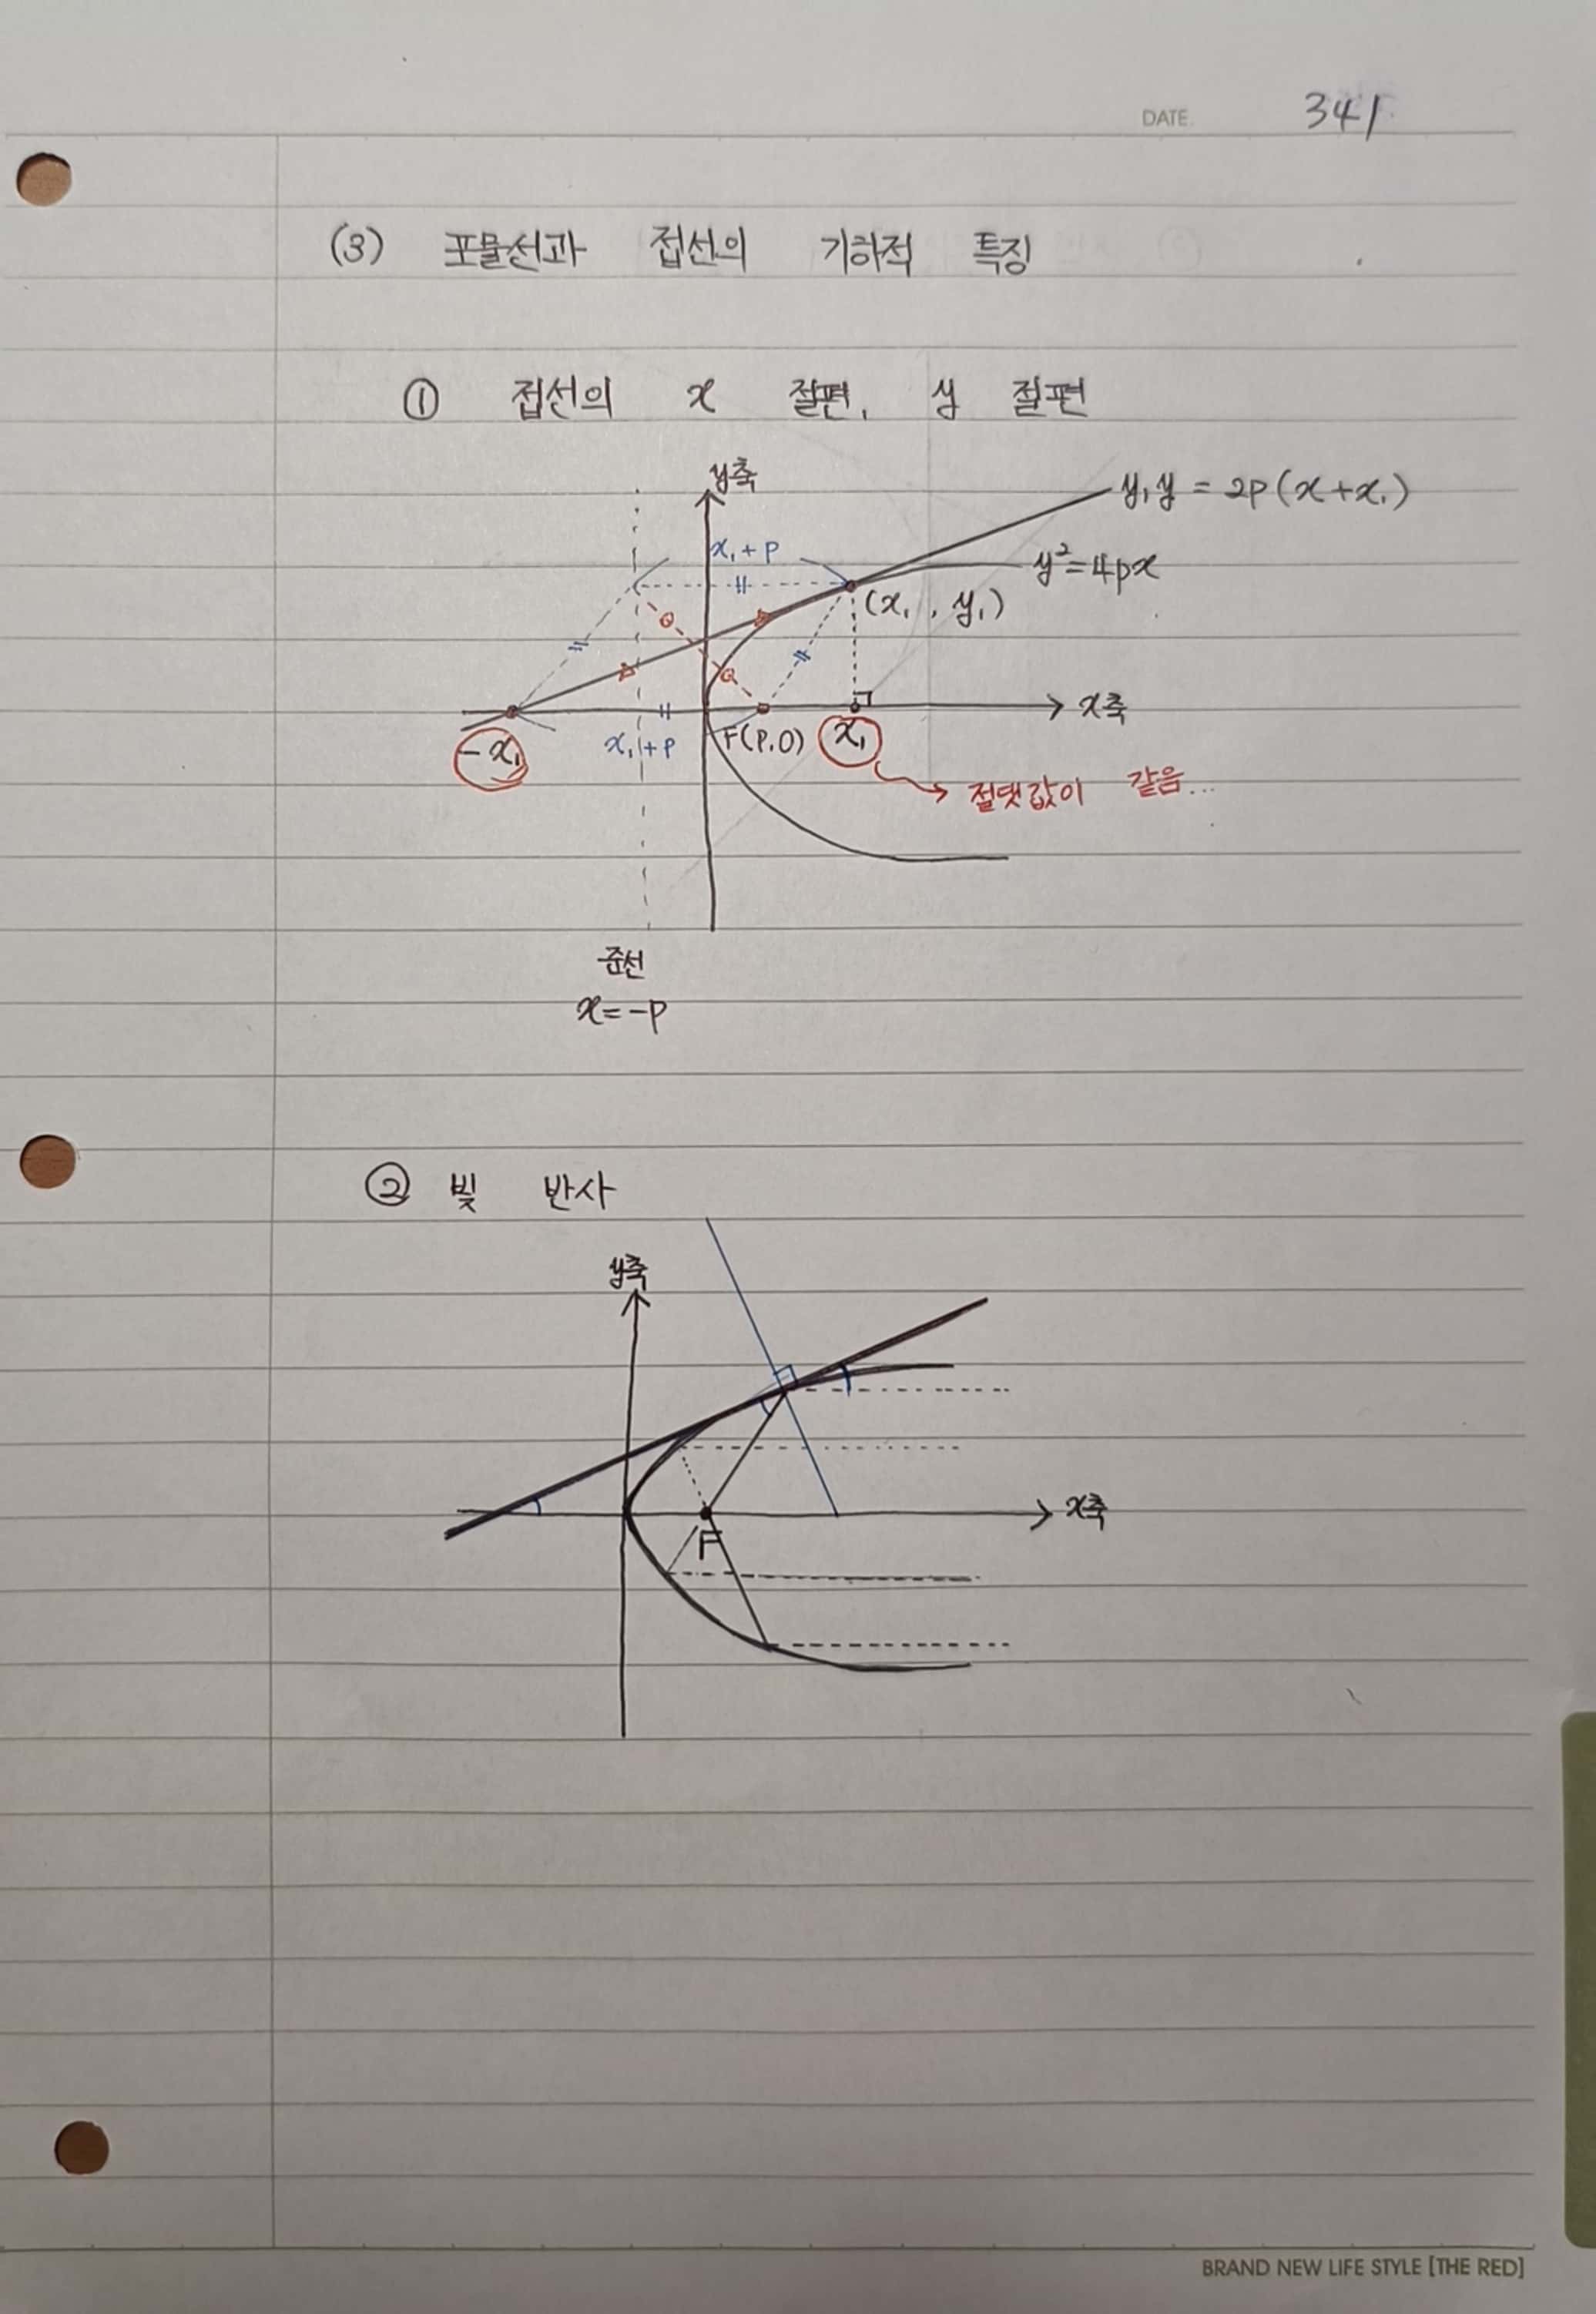 DATE. 341
(3) 포물선과 접선의 기하적 특징
① 접선의 x 절편, y 절편
y축
y₁y = 2p(x+x₁)
x₁+p
y²=4px
(x₁, y₁)
x축
-x₁
x₁+p
F(p,0)
x₁
절댓값이 같음...
준선
x=-p
② 빛 반사
y축
x축
F
BRAND NEW LIFE STYLE [THE RED]